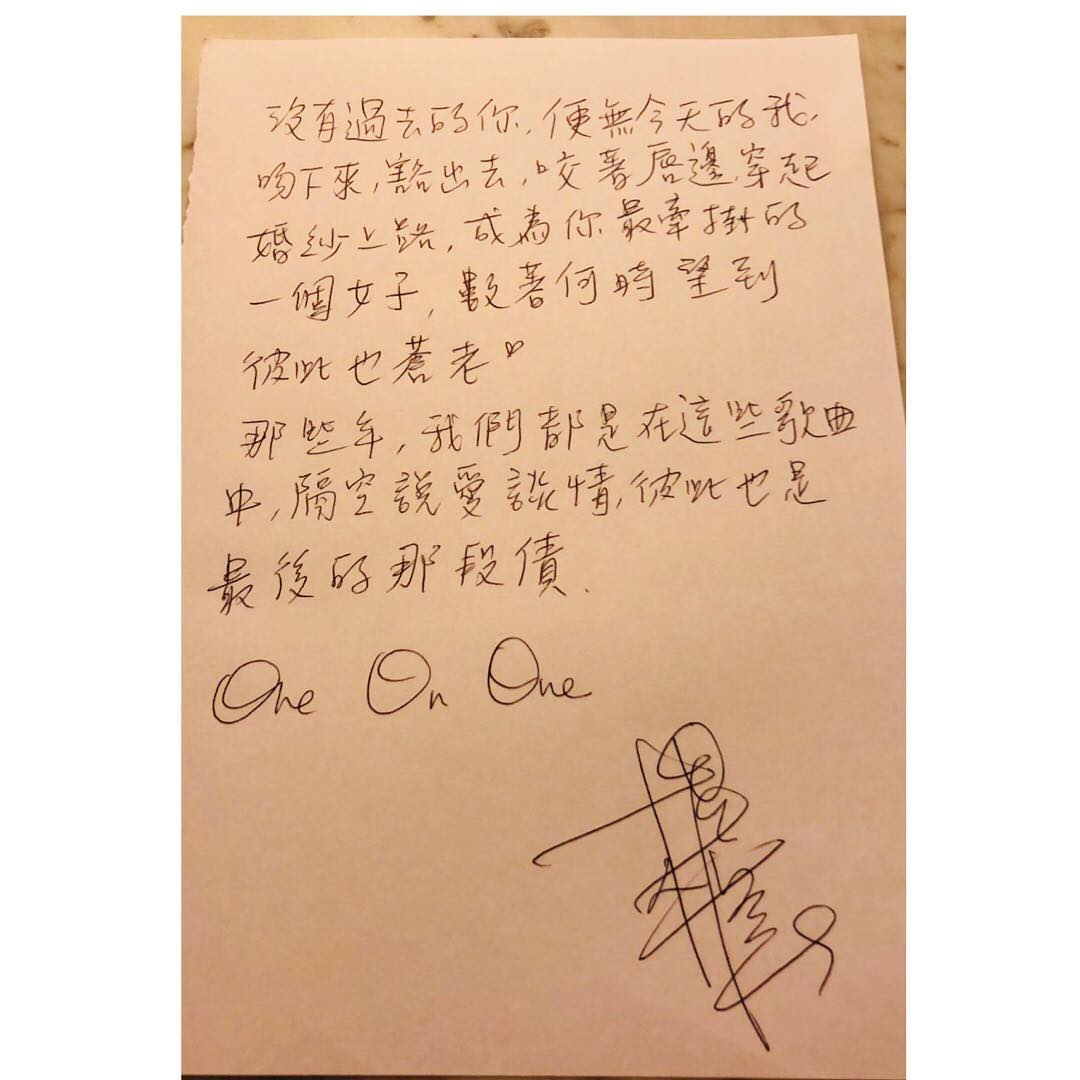 沒有過去的你，便無今天的我，
吻下來，豁出去，咬著唇邊，穿起
婚紗上路，成為你最牽掛的
一個女子，數著何時望到
彼此也蒼老♡
那些年，我們都是在這些歌曲
中，隔空說愛談情，彼此也是
最後的那段債．
One On One